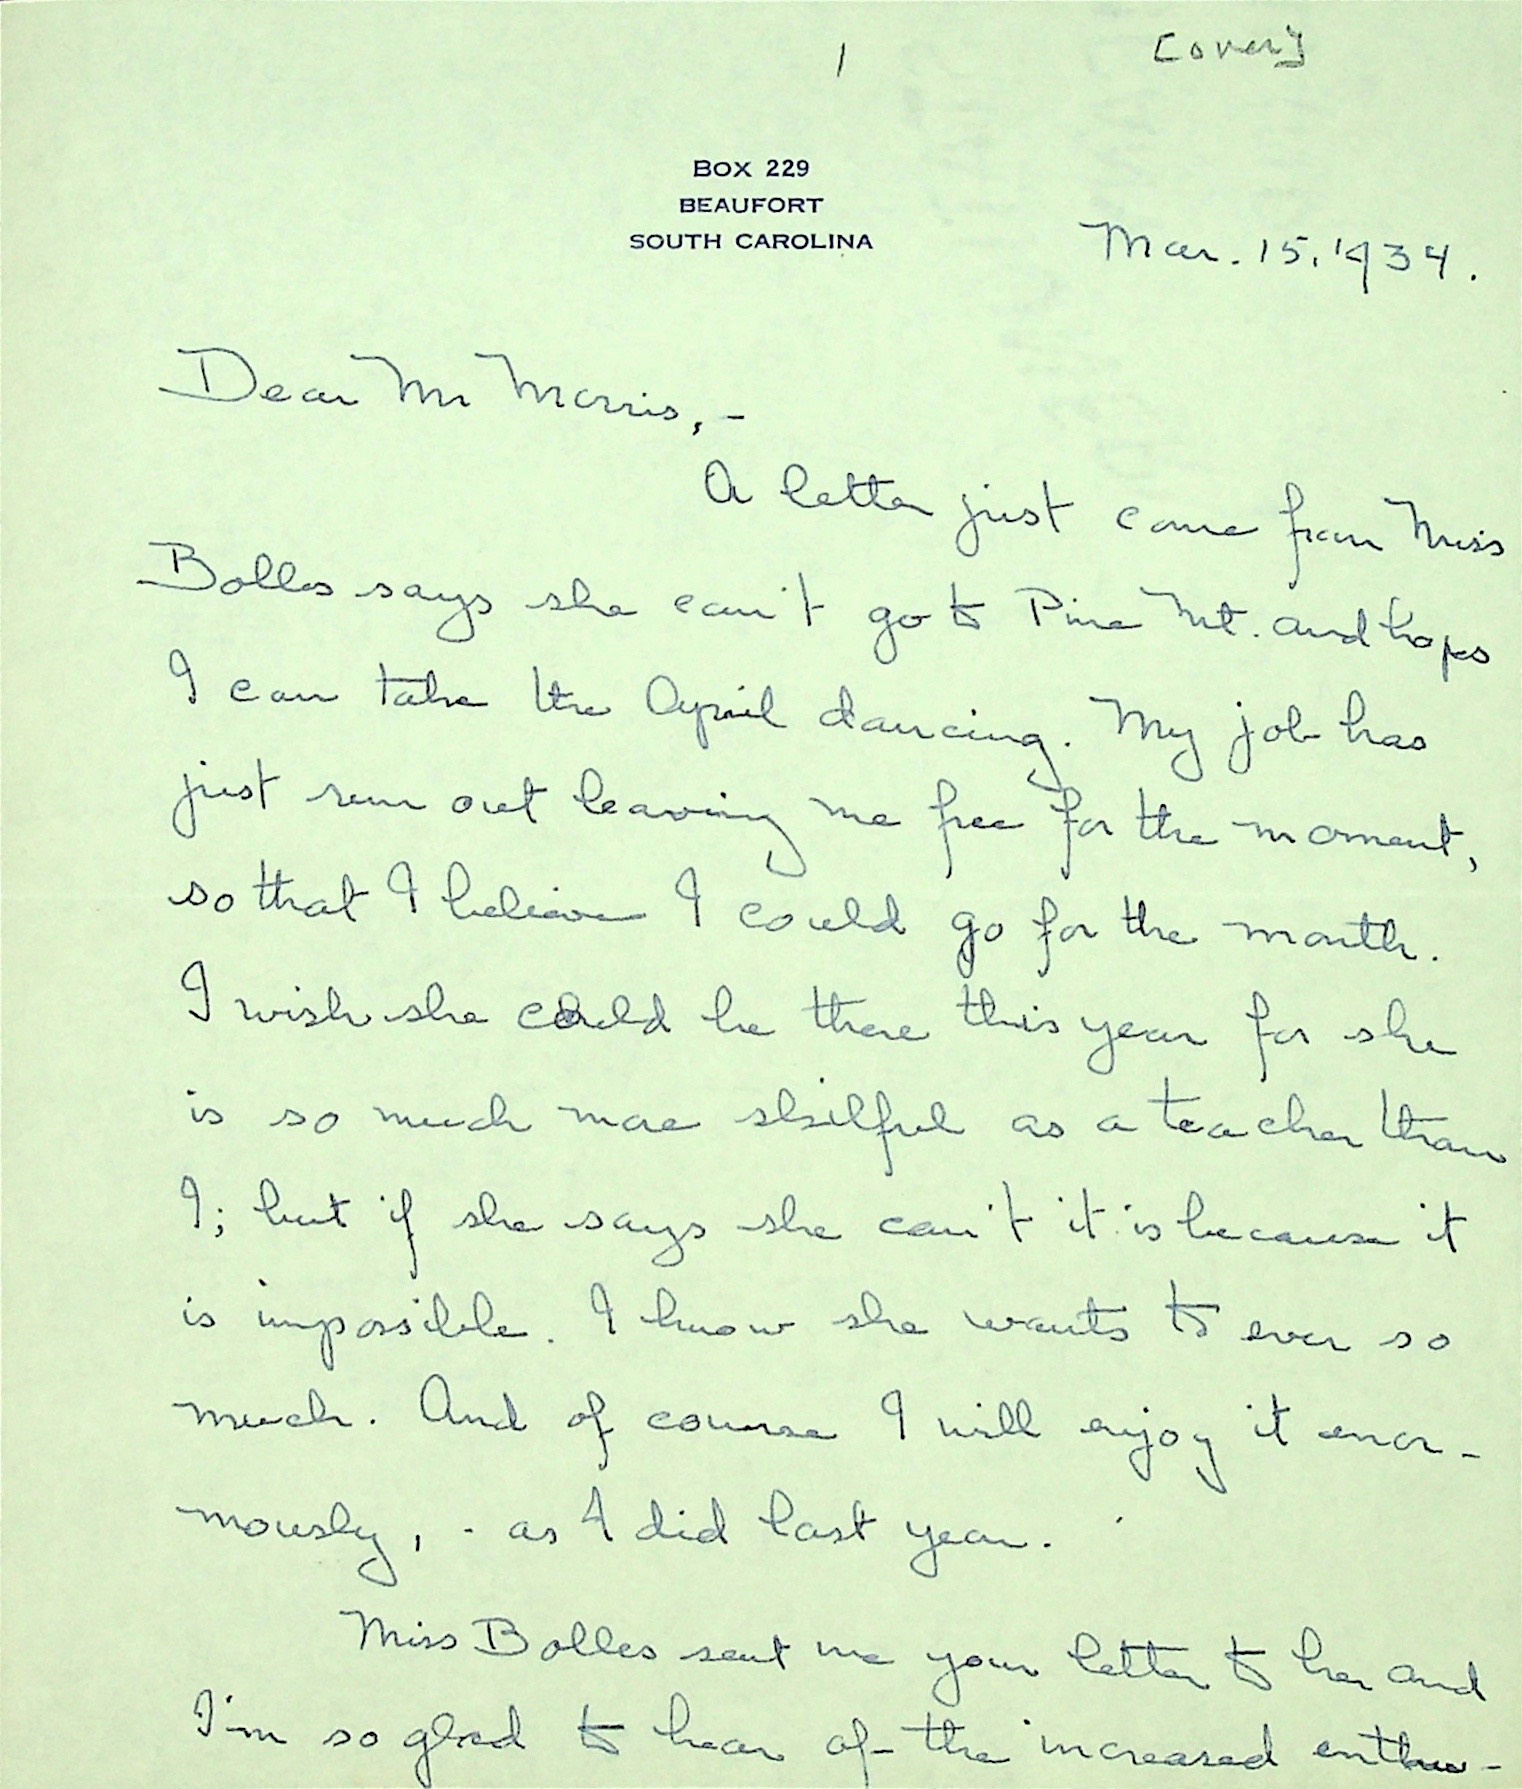 1
[over]
BOX 229
BEAUFORT
SOUTH CAROLINA
Mar. 15, 1934.
Dear Mr Morris, -
A letter just come from Miss
Bolles says she can't go to Pine Mt. and hopes
I can take the April dancing. My job has
just run out leaving me free for the moment,
so that I believe I could go for the month.
I wish she could be there this year for she
is so much more skilful as a teacher than
I; but if she says she can't it is because it
is impossible. I know she wants to ever so
much. And of course I will enjoy it enor-
mously, - as I did last year.
Miss Bolles sent me your letter to her and
I'm so glad to hear of the increased enthu-